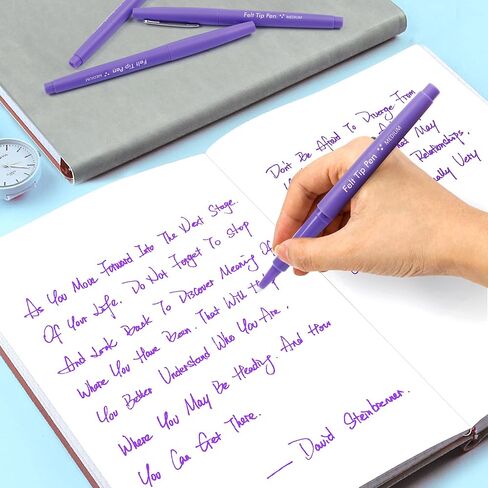 Felt Tip Pen MEDIUM
Felt Tip Pen MEDIUM
Felt Tip Pen MEDIUM
As You Move Forward Into The Next Stage
Of Your Life. Do Not Forget To Stop
And Look Back To Discover Meaning Of
Where You Have Been. That Will
You Better Understand Who You Are.
Where You May Be Heading. And How
You Can Get There.
— David Steinbrenner.
Don't Be Afraid To Diverge From
May
Relationships.
Very